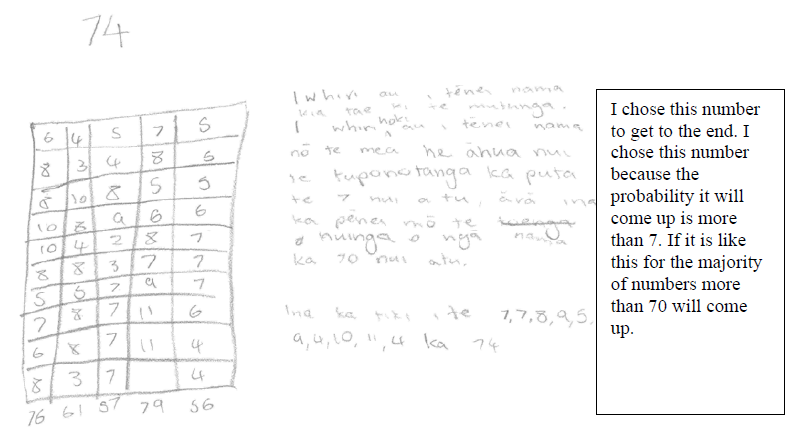 74
6 4 5 7 5
8 3 4 8 5
8 10 8 5 5
10 8 9 6 6
10 4 2 8 7
8 8 3 7 7
5 5 7 9 7
7 8 7 11 6
6 8 7 11 4
8 3 7 4
76 61 57 79 56
I whiri au i tēnei nama
kia tae ki te mutunga.
I whiri hoki au i tēnei nama
nō te mea he āhua nui
te tuponotanga ka puta
te 7 nui atu, ārā ina
ka pēnei mō te
nuinga o ngā nama
ka 70 nui atu.
Ina ka tiki i te 7,7,8,9,5,
9,4,10,11,4 ka 74
I chose this number
to get to the end. I
chose this number
because the
probability it will
come up is more
than 7. If it is like
this for the majority
of numbers more
than 70 will come
up.